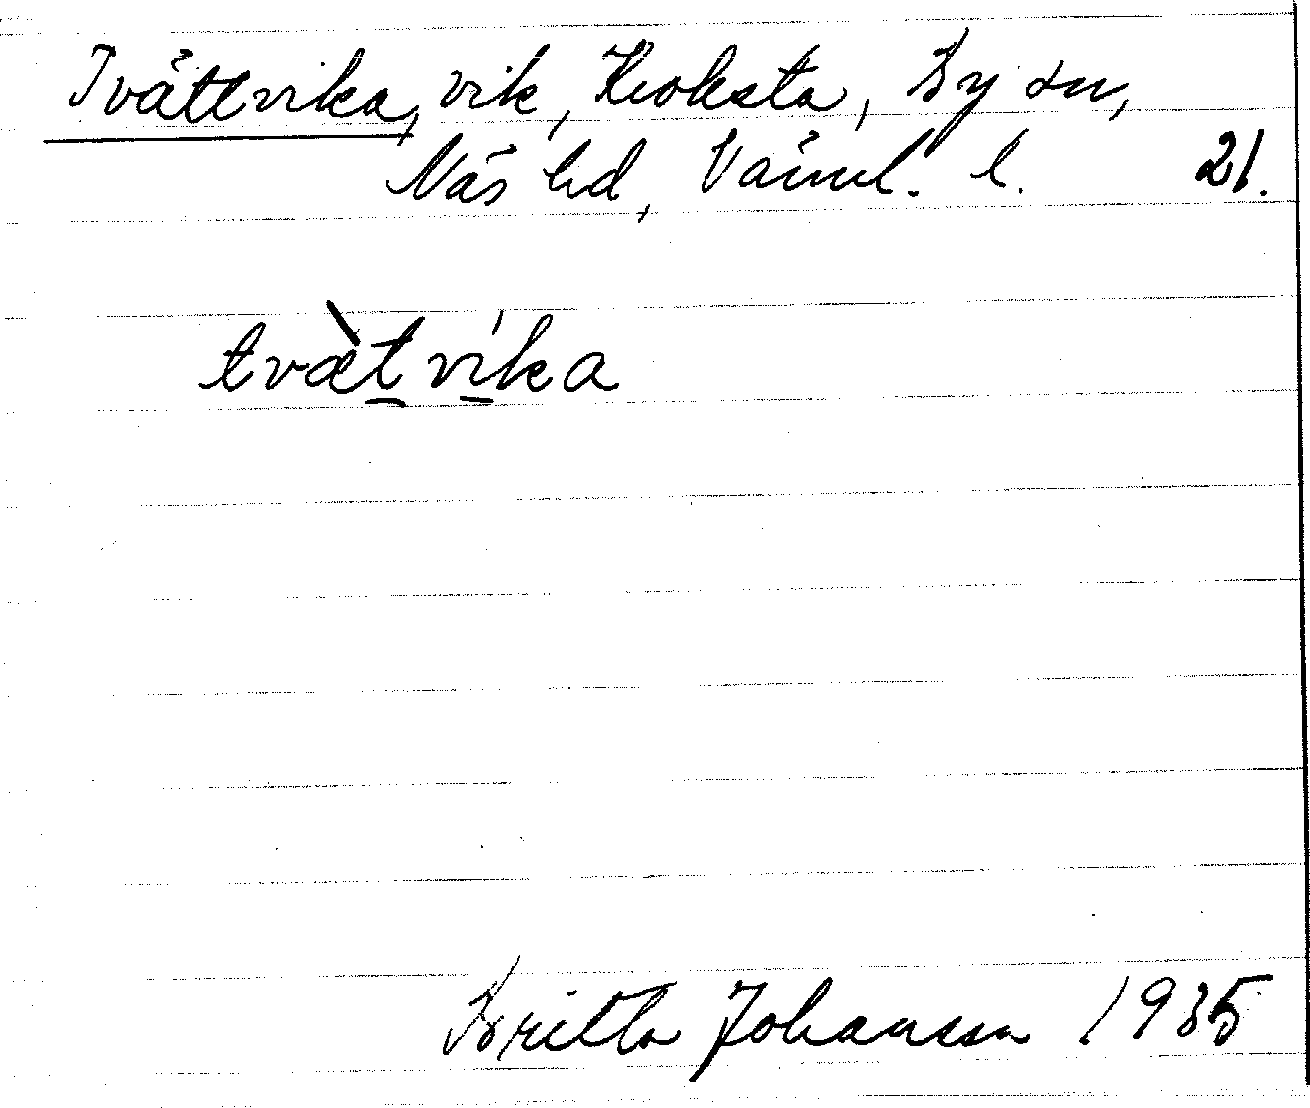 Tvättvika, vik, Kroksta, By sn,
Näs hd, Värml. l. 21.
tvæ̀tvíka
Britta Johansson 1935